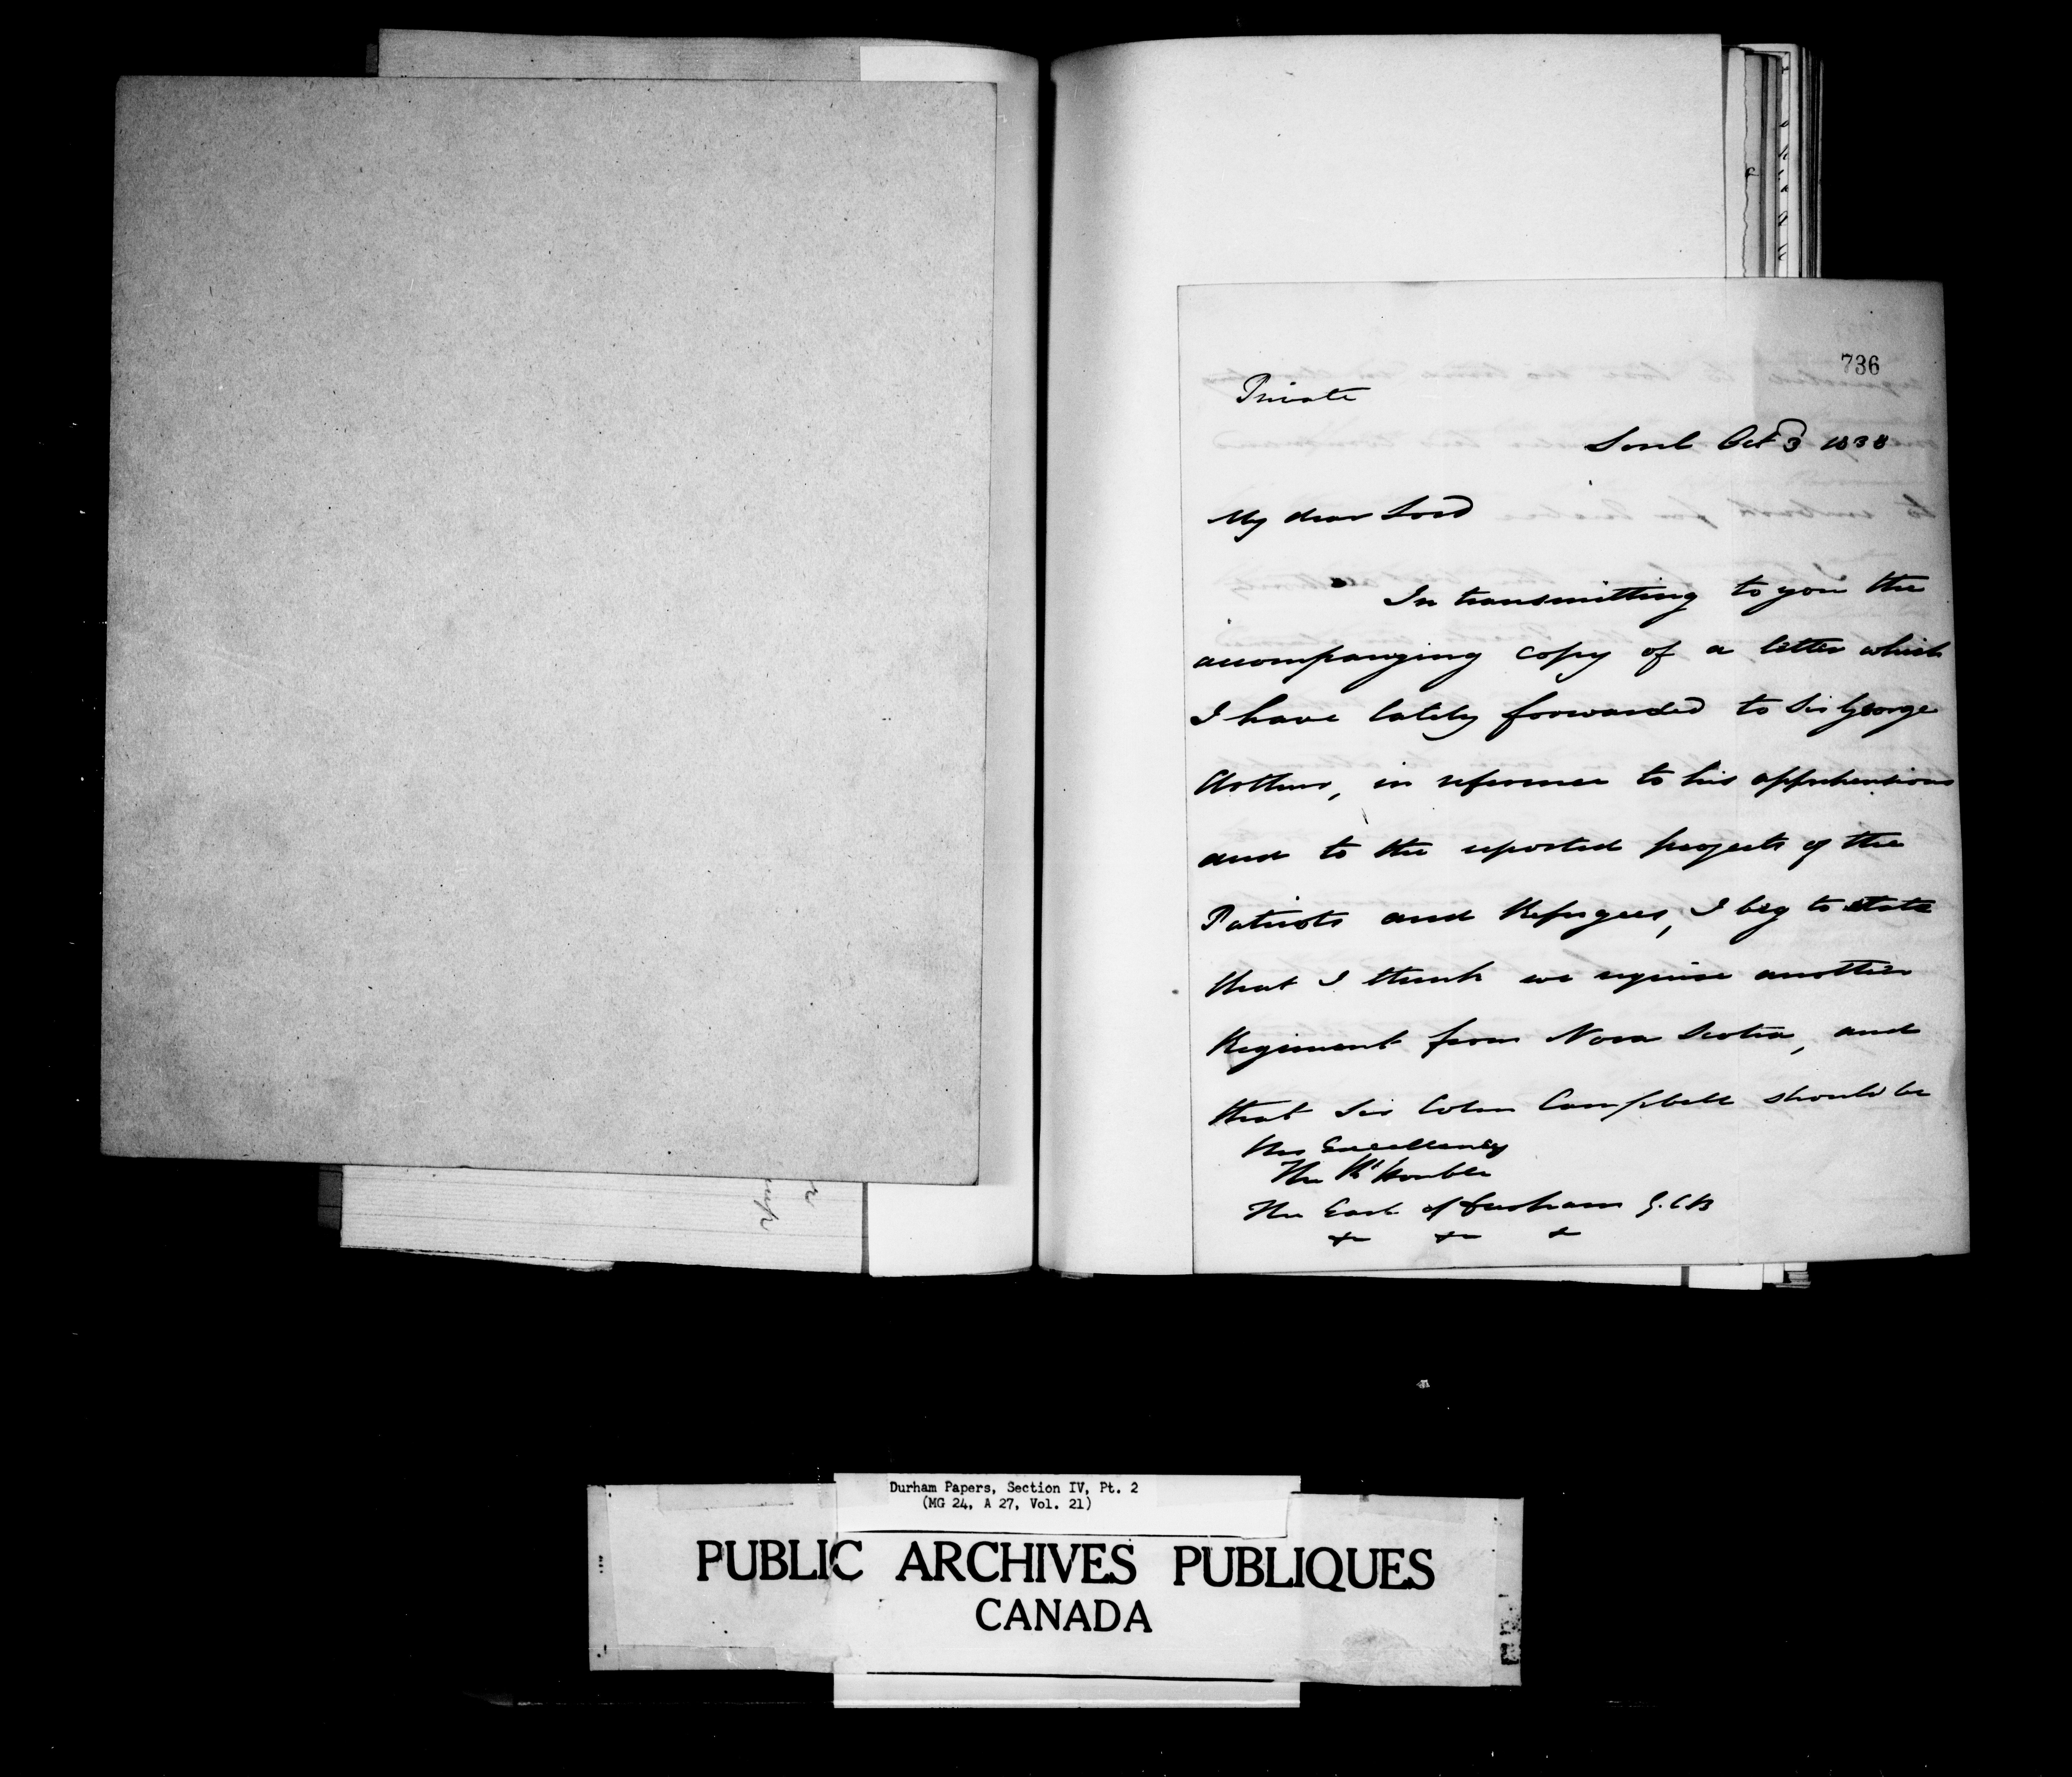 736
Private
Sorel Oct 3 1838
My dear Lord
In transmitting to you the
accompanying copy of a letter which
I have lately forwarded to Sir George
Arthur, in reference to his apprehensions
and to the reported projects of the
Patriots and Refugees, I beg to state
that I think we require another
Regiment from Nova Scotia, and
that Sir Colin Campbell should be
His Excellency
The Rt Honble
The Earl of Durham G.C.B
&c &c &c
Durham Papers, Section IV, Pt. 2
(MG 24, A 27, Vol. 21)
PUBLIC ARCHIVES PUBLIQUES
CANADA